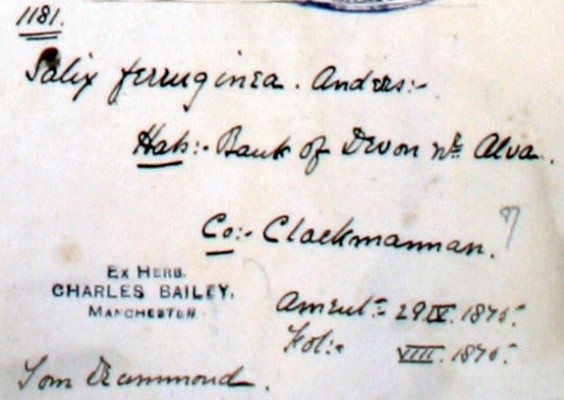 1181.
Salix ferruginea. Anders:-
Hab:- Bank of Devon nr. Alva.
Co:- Clackmannan.
EX HERB.
CHARLES BAILEY,
MANCHESTER.
Ament:- 29.IV.1875.
Fol:- VIII.1875.
Tom Drummond.